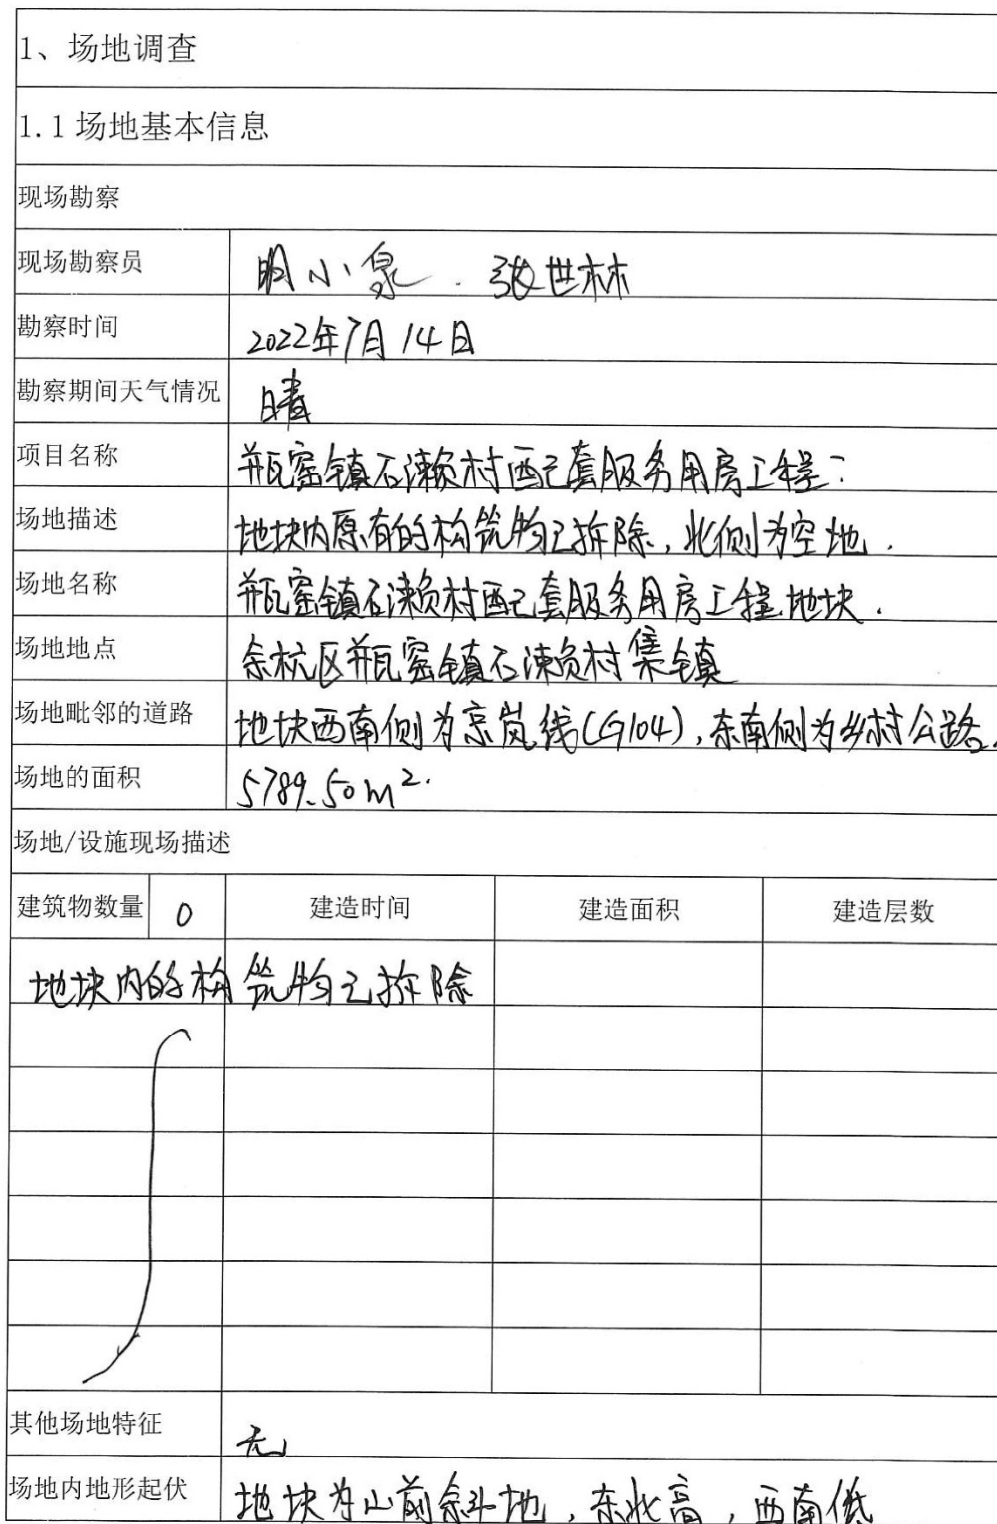 1、场地调查
1.1 场地基本信息
现场勘察
现场勘察员 明小泉. 张世林
勘察时间 2022年7月14日
勘察期间天气情况 晴
项目名称 瓶窑镇石濑村配套服务用房工程.
场地描述 地块内原有的构筑物已拆除,北侧为空地.
场地名称 瓶窑镇石濑村配套服务用房工程地块.
场地地点 余杭区瓶窑镇石濑村集镇
场地毗邻的道路 地块西南侧为京岚线(G104),东南侧为乡村公路.
场地的面积 5789.50m².
场地/设施现场描述
建筑物数量 0 建造时间 建造面积 建造层数
地块内的构筑物已拆除
其他场地特征 无
场地内地形起伏 地块为山前斜地,东北高,西南低